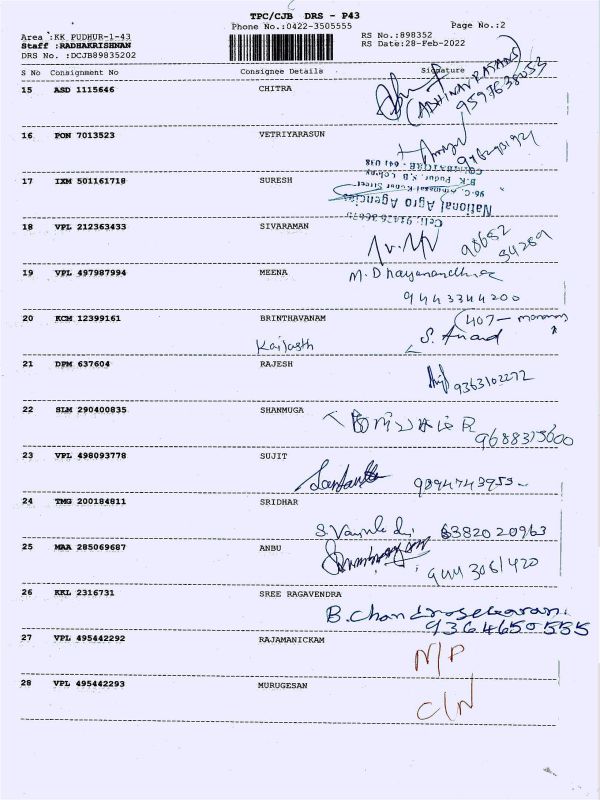 TPC/CJB DRS - P43
Phone No.:0422-3505555
Page No.:2
Area :KK PUDHUR-1-43
RS No.:898352
Staff :RADHAKRISHNAN
RS Date:28-Feb-2022
DRS No. :DCJB89835202
S No Consignment No Consignee Details Signature
15 ASD 1115646 CHITRA
16 PON 7013523 VETRIYARASUN
17 IXM 501161718 SURESH
National Agro Agencies
18 VPL 212363433 SIVARAMAN
98652
19 VPL 497987994 MEENA
9443344200
20 KCM 12399161 BRINTHAVANAM
Kailasth S. Anand
21 DPM 637604 RAJESH
9363102272
22 SLM 290400835 SHANMUGA
9688375600
23 VPL 498093778 SUJIT
24 TMG 200184811 SRIDHAR
6382020963
25 MAA 285069687 ANBU
9443061420
26 KKL 2316731 SREE RAGAVENDRA
B.Chandrasekaran
9364650555
27 VPL 495442292 RAJAMANICKAM
N/P
28 VPL 495442293 MURUGESAN
C/N